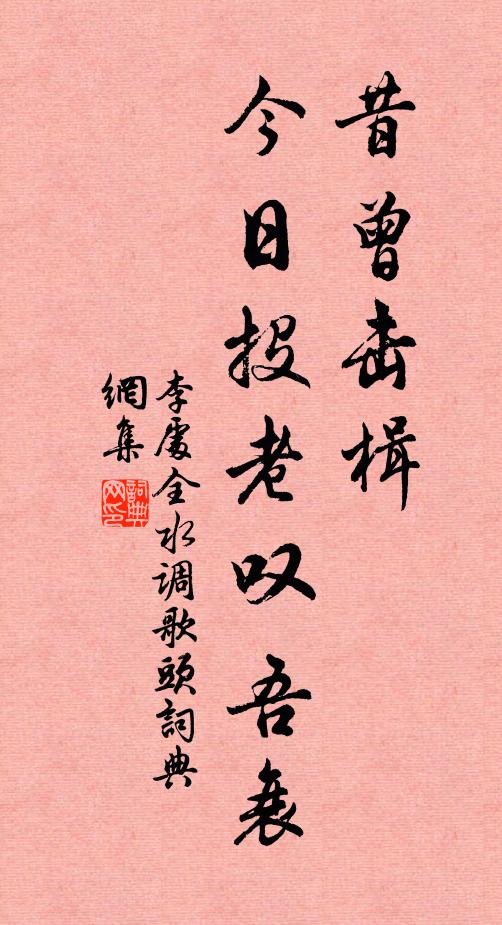 昔曾击楫
今日投老叹吾衰
李處全水调歌頭詞典
網集
詞典网印